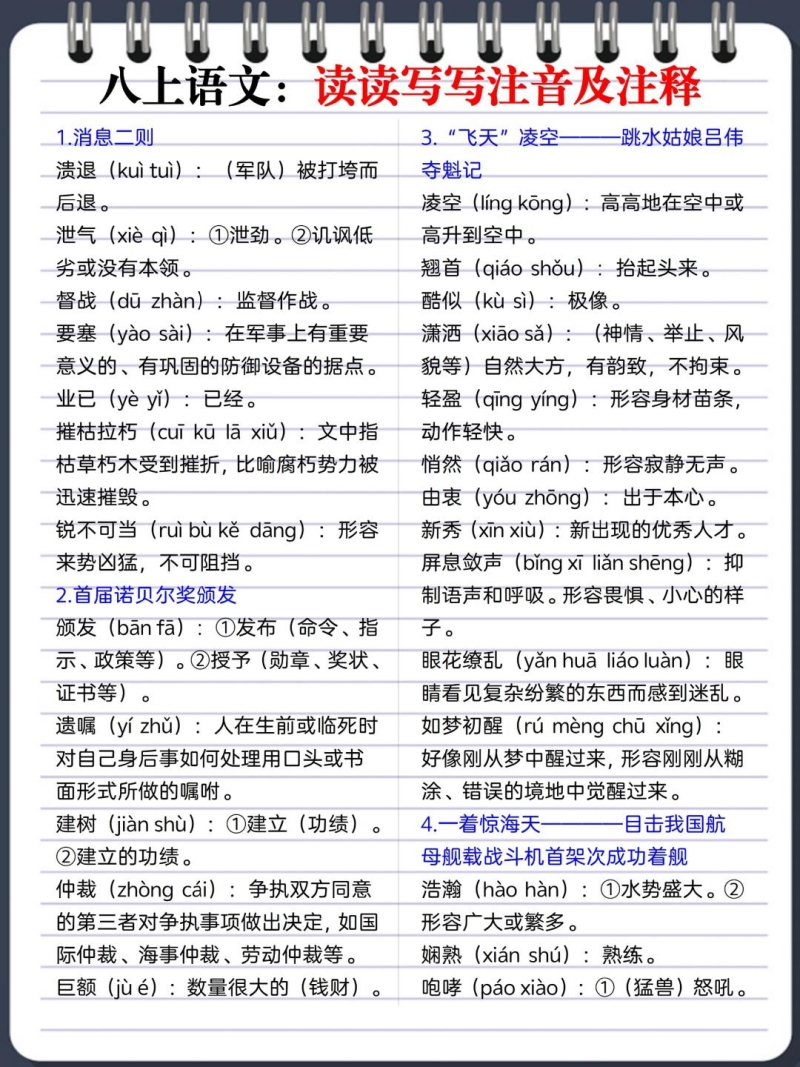 八上语文：读读写写注音及注释
1.消息二则
溃退（kuì tuì）：（军队）被打垮而
后退。
泄气（xiè qì）：①泄劲。②讥讽低
劣或没有本领。
督战（dū zhàn）：监督作战。
要塞（yào sài）：在军事上有重要
意义的、有巩固的防御设备的据点。
业已（yè yǐ）：已经。
摧枯拉朽（cuī kū lā xiǔ）：文中指
枯草朽木受到摧折，比喻腐朽势力被
迅速摧毁。
锐不可当（ruì bù kě dāng）：形容
来势凶猛，不可阻挡。
2.首届诺贝尔奖颁发
颁发（bān fā）：①发布（命令、指
示、政策等）。②授予（勋章、奖状、
证书等）。
遗嘱（yí zhǔ）：人在生前或临死时
对自己身后事如何处理用口头或书
面形式所做的嘱咐。
建树（jiàn shù）：①建立（功绩）。
②建立的功绩。
仲裁（zhòng cái）：争执双方同意
的第三者对争执事项做出决定，如国
际仲裁、海事仲裁、劳动仲裁等。
巨额（jù é）：数量很大的（钱财）。
3.“飞天”凌空———跳水姑娘吕伟
夺魁记
凌空（líng kōng）：高高地在空中或
高升到空中。
翘首（qiáo shǒu）：抬起头来。
酷似（kù sì）：极像。
潇洒（xiāo sǎ）：（神情、举止、风
貌等）自然大方，有韵致，不拘束。
轻盈（qīng yíng）：形容身材苗条，
动作轻快。
悄然（qiǎo rán）：形容寂静无声。
由衷（yóu zhōng）：出于本心。
新秀（xīn xiù）：新出现的优秀人才。
屏息敛声（bǐng xī liǎn shēng）：抑
制语声和呼吸。形容畏惧、小心的样
子。
眼花缭乱（yǎn huā liáo luàn）：眼
睛看见复杂纷繁的东西而感到迷乱。
如梦初醒（rú mèng chū xǐng）：
好像刚从梦中醒过来，形容刚刚从糊
涂、错误的境地中觉醒过来。
4.一着惊海天————目击我国航
母舰载战斗机首架次成功着舰
浩瀚（hào hàn）：①水势盛大。②
形容广大或繁多。
娴熟（xián shú）：熟练。
咆哮（páo xiào）：①（猛兽）怒吼。